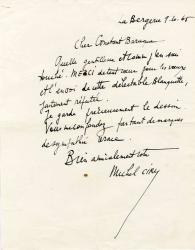 La Bergerie 9.10.65
Cher Constant Baruna
Quelle gentillesse et comme j'en suis
touché. MERCI de tout cœur pour les vœux
et l'envoi de cette délectable Blanquette,
justement réputée.
Je garde précieusement le dessin
Vous me confondez par tant de marques
de sympathie
Bien amicalement vôtre
Michel Ciry